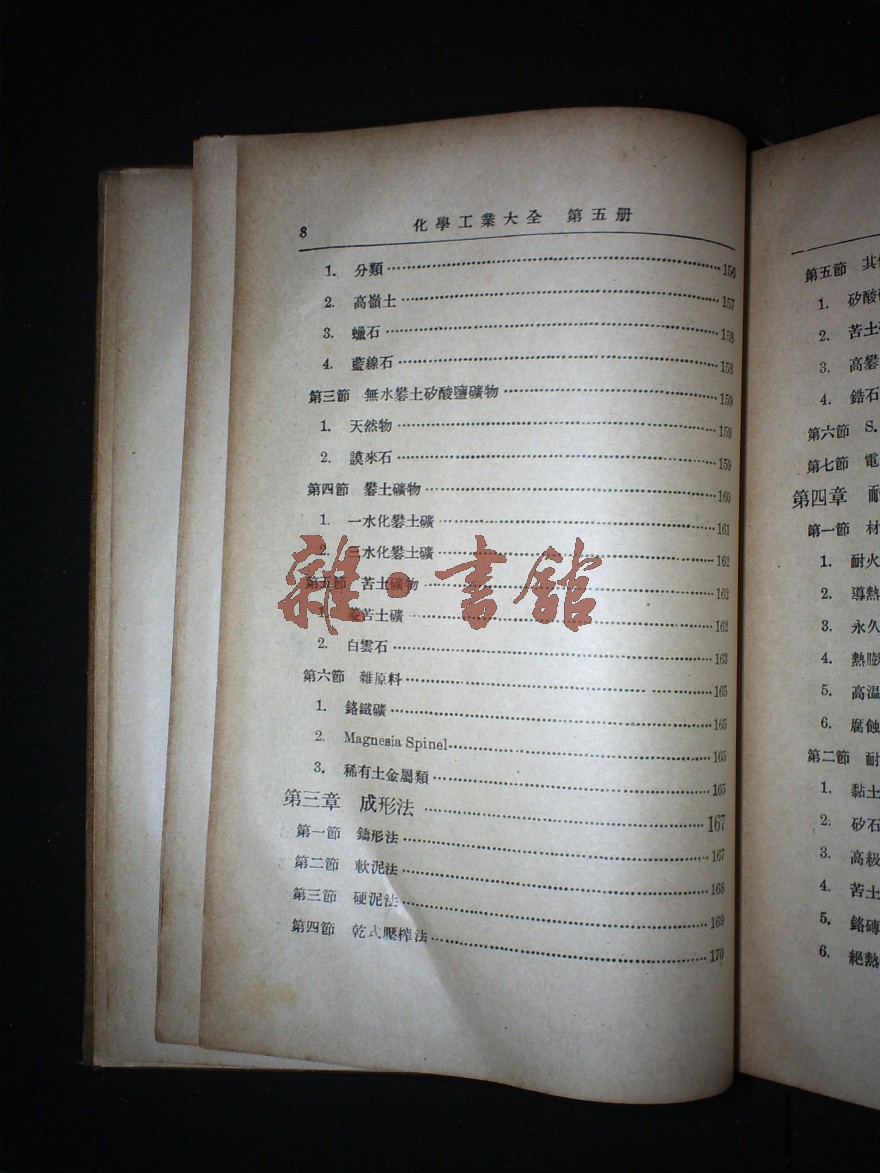 8 化學工業大全 第五册
1. 分類 156
2. 高嶺土 157
3. 蠟石 158
4. 藍線石 158
第三節 無水礬土矽酸鹽礦物 159
1. 天然物 159
2. 謨來石 159
第四節 礬土礦物 160
1. 一水化礬土礦 161
2. 三水化礬土礦 162
第五節 苦土礦物 162
1. 菱苦土礦 162
2. 白雲石 163
第六節 雜原料 165
1. 鉻鐵礦 165
2. Magnesia Spinel 165
3. 稀有土金屬類 165
第三章 成形法 167
第一節 鑄形法 167
第二節 軟泥法 168
第三節 硬泥法 169
第四節 乾式壓榨法 170
雜·書館
第五節 其
1. 矽酸
2. 苦土
3. 高礬
4. 鋯石
第六節 S.
第七節 電
第四章 耐
第一節 材
1. 耐火
2. 導熱
3. 永久
4. 熱膨
5. 高温
6. 腐蝕
第二節 耐
1. 黏土
2. 矽石
3. 高級
4. 苦土
5. 鉻磚
6. 絕熱